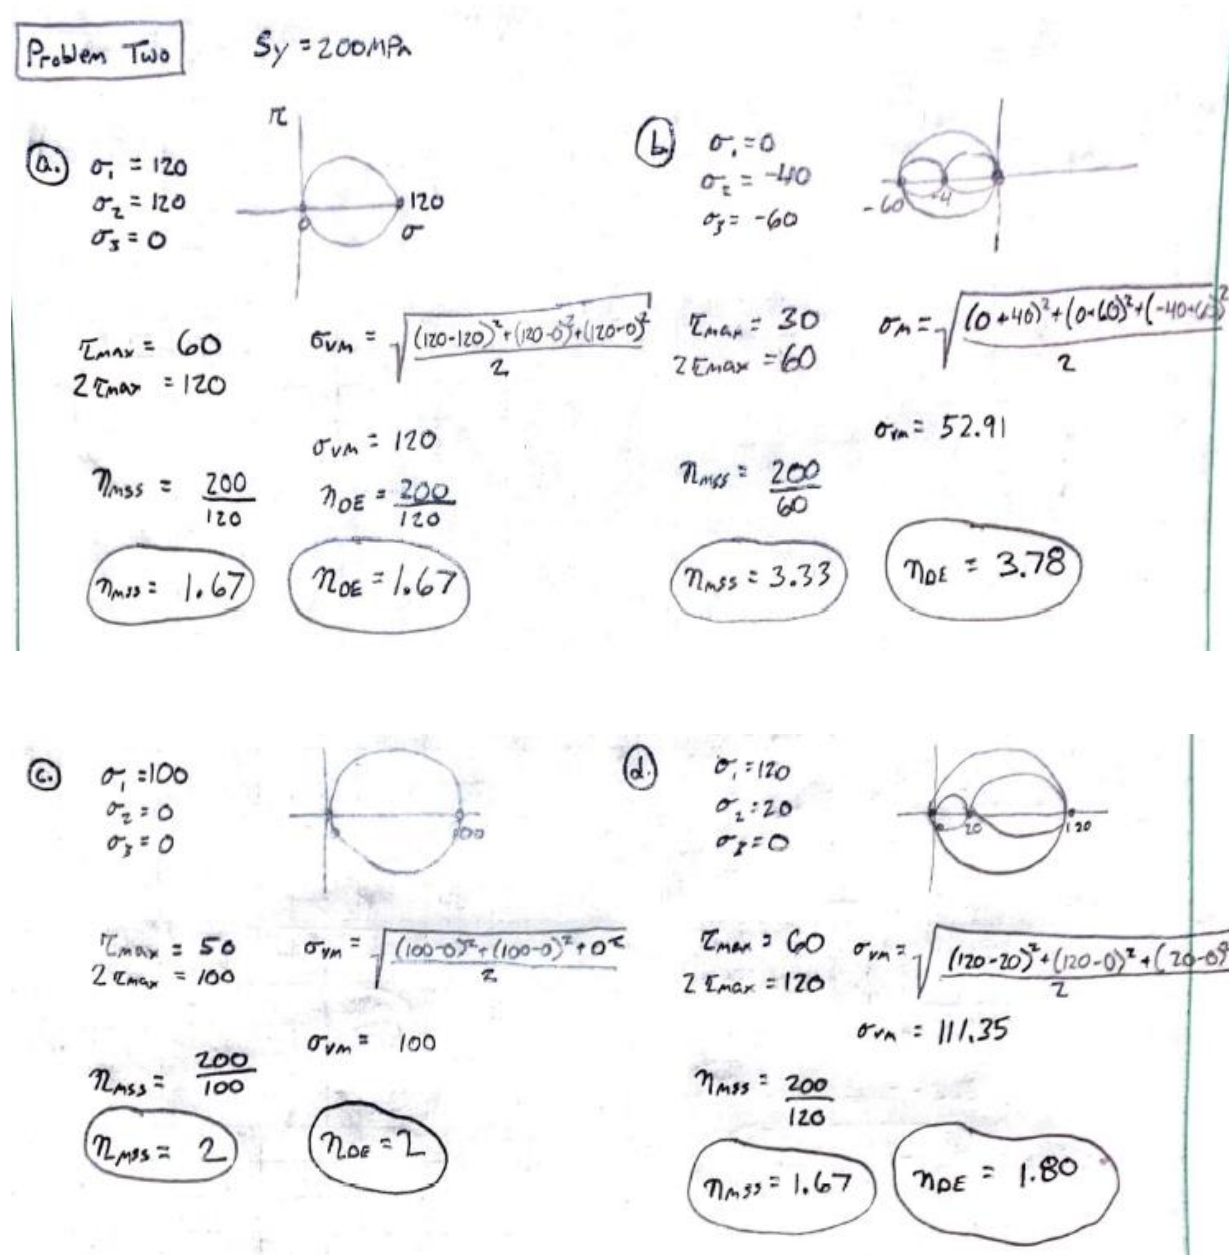 Problem Two
Sy = 200MPa
a.
σ₁ = 120
σ₂ = 120
σ₃ = 0
τ
0
120
σ
τmax = 60
2τmax = 120
σVM = √((120-120)²+(120-0)²+(120-0)²/2)
σVM = 120
ηmss = 200/120
ηDE = 200/120
ηmss = 1.67
ηDE = 1.67
b.
σ₁ = 0
σ₂ = -40
σ₃ = -60
-60
-4
τmax = 30
2τmax = 60
σm = √((0+40)²+(0+60)²+(-40+60)²/2)
σvm = 52.91
ηmss = 200/60
ηmss = 3.33
ηDE = 3.78
c.
σ₁ = 100
σ₂ = 0
σ₃ = 0
τmax = 50
2τmax = 100
σVM = √((100-0)²+(100-0)²+0²/2)
σVM = 100
ηmss = 200/100
ηmss = 2
ηDE = 2
d.
σ₁ = 120
σ₂ = 20
σ₃ = 0
20
120
τmax = 60
2τmax = 120
σvm = √((120-20)²+(120-0)²+(20-0)²/2)
σvm = 111.35
ηmss = 200/120
ηmss = 1.67
ηDE = 1.80